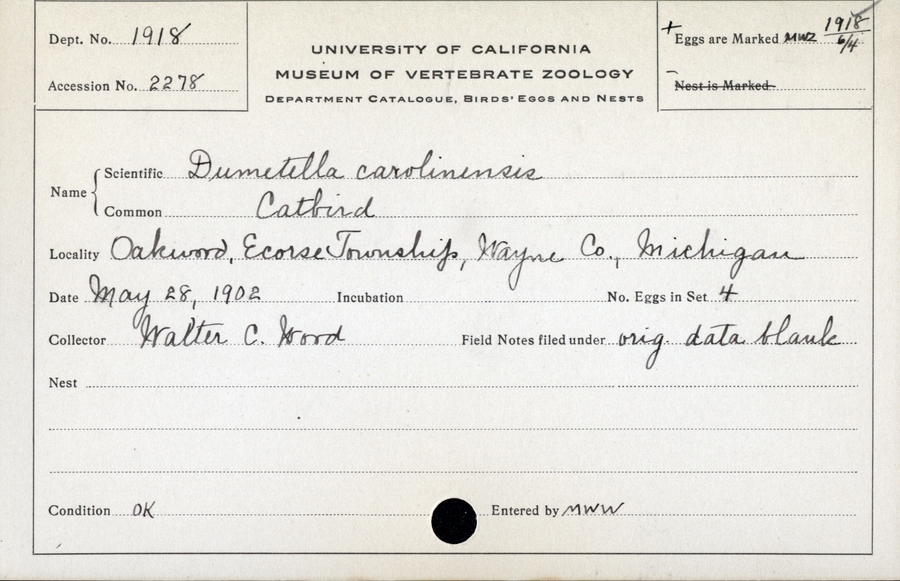 Dept. No. 1918
Accession No. 2278
UNIVERSITY OF CALIFORNIA
MUSEUM OF VERTEBRATE ZOOLOGY
DEPARTMENT CATALOGUE, BIRDS' EGGS AND NESTS
+ Eggs are Marked MWZ 1918
6/4
Nest is Marked
Name
Scientific Dumetella carolinensis
Common Catbird
Locality Oakwood, Ecorse Township, Wayne Co., Michigan
Date May 28, 1902 Incubation No. Eggs in Set 4
Collector Walter C. Wood Field Notes filed under orig. data blank
Nest
Condition OK Entered by MWW